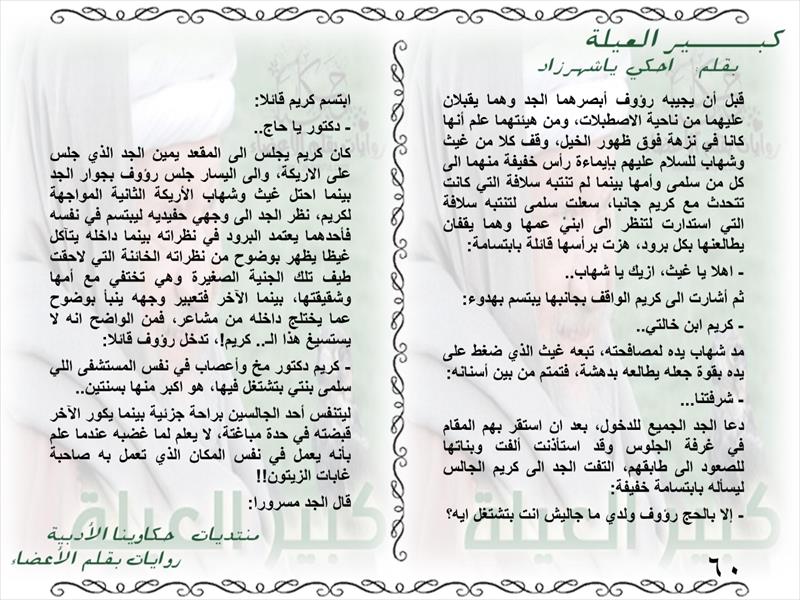 كبـــــــير العيلة
بقلم احكي ياشهرزاد
قبل أن يجيبه رؤوف أبصرهما الجد وهما يقبلان
عليهما من ناحية الاصطبلات، ومن هيئتهما علم أنها
كانا في نزهة فوق ظهور الخيل، وقف كلا من غيث
وشهاب للسلام عليهم بإيماءة رأس خفيفة منهما الى
كل من سلمى وأمها بينما لم تنتبه سلافة التي كانت
تتحدث مع كريم جانبا، سعلت سلمى لتنتبه سلافة
التي استدارت لتنظر الى ابنيّ عمها وهما يقفان
يطالعنها بكل برود، هزت برأسها قائلة بابتسامة:
- اهلا يا غيث، ازيك يا شهاب..
ثم أشارت الى كريم الواقف بجانبها يبتسم بهدوء:
- كريم ابن خالتي..
مد شهاب يده لمصافحته، تبعه غيث الذي ضغط على
يده بقوة جعله يطالعه بدهشة، فتمتم من بين أسنانه:
- شرفتنا...
دعا الجد الجميع للدخول، بعد ان استقر بهم المقام
في غرفة الجلوس وقد استأذنت ألفت وبناتها
للصعود الى طابقهم، التفت الجد الى كريم الجالس
ليسأله بابتسامة خفيفة:
- إلا بالحج رؤوف ولدي ما جاليش انت بتشتغل ايه؟
ابتسم كريم قائلا:
- دكتور يا حاج..
كان كريم يجلس الى المقعد يمين الجد الذي جلس
على الاريكة، والى اليسار جلس رؤوف بجوار الجد
بينما احتل غيث وشهاب الأريكة الثانية المواجهة
لكريم، نظر الجد الى وجهي حفيديه ليبتسم في نفسه
فأحدهما يعتمد البرود في نظراته بينما داخله يتآكل
غيظا يظهر بوضوح من نظراته الخائنة التي لاحقت
طيف تلك الجنية الصغيرة وهي تختفي مع أمها
وشقيقتها، بينما الآخر فتعبير وجهه ينبأ بوضوح
عما يختلج داخله من مشاعر، فمن الواضح انه لا
يستسيغ هذا الـ.. كريم!، تدخل رؤوف قائلا:
- كريم دكتور مخ وأعصاب في نفس المستشفى اللي
سلمى بنتي بتشتغل فيها، هو اكبر منها بسنتين..
ليتنفس أحد الجالسين براحة جزئية بينما يكور الآخر
قبضته في حدة مباغتة، لا يعلم لما غضبه عندما علم
بأنه يعمل في نفس المكان الذي تعمل به صاحبة
غابات الزيتون!!
قال الجد مسرورا:
منتديات حكاوينا الأدبية
روايات بقلم الأعضاء
كبير العيلة
كبير العيلة
٦٠